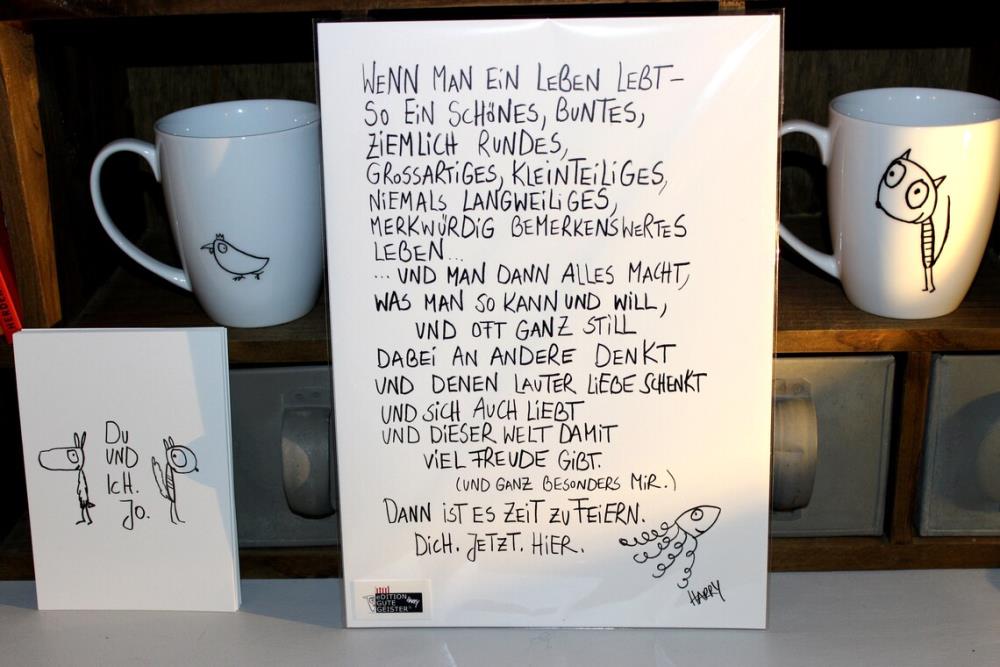 WENN MAN EIN LEBEN LEBT –
SO EIN SCHÖNES, BUNTES,
ZIEMLICH RUNDES,
GROSSARTIGES, KLEINTEILIGES,
NIEMALS LANGWEILIGES,
MERKWÜRDIG BEMERKENSWERTES
LEBEN...
... UND MAN DANN ALLES MACHT,
WAS MAN SO KANN UND WILL,
UND OFT GANZ STILL
DABEI AN ANDERE DENKT
UND DENEN LAUTER LIEBE SCHENKT
UND SICH AUCH LIEBT
UND DIESER WELT DAMIT
VIEL FREUDE GIBT.
(UND GANZ BESONDERS MIR.)
DANN IST ES ZEIT ZU FEIERN.
DICH. JETZT. HIER.
HARRY
EDITION
GUTE
GEISTER
Du
UND
ICH.
Jo.
HERDER